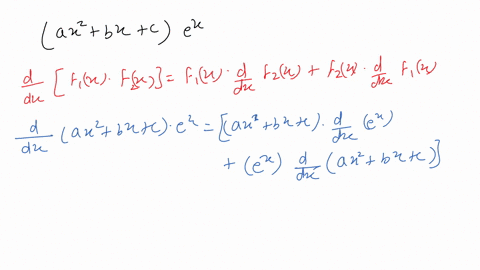 (ax²+bx+c) eˣ
d/dx [F₁(x) · F₂(x)] = F₁(x) · d/dx F₂(x) + F₂(x) · d/dx F₁(x)
d/dx (ax²+bx+c) · eˣ = [(ax²+bx+c) · d/dx (eˣ)
+ (eˣ) d/dx (ax²+bx+c)]